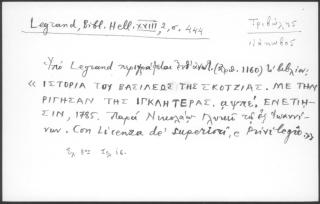 Legrand, Bibl. Hell. XVIII, 2, σ. 444
Τριβώλης
Ιάκωβος
Υπό Legrand περιγράφεται ἐνθ' ἀνωτ. (ἀριθ. 1160) τὸ βιβλίον:
« ΙΣΤΟΡΙΑ ΤΟΥ ΒΑΣΙΛΕΩΣ ΤΗΣ ΣΚΟΤΖΙΑΣ. ΜΕ ΤΗΝ
ΡΙΓΗΣΑΝ ΤΗΣ ΙΓΚΛΗΤΕΡΑΣ. αψπε΄. ΕΝΕΤΙΗ-
ΣΙΝ, 1785. Παρὰ Νικολάῳ Γλυκεῖ τῷ ἐξ Ἰωαννί-
νων. Con Licenza de' superiori, e Privilegio »
Σχ. 8ον σελ. 16.